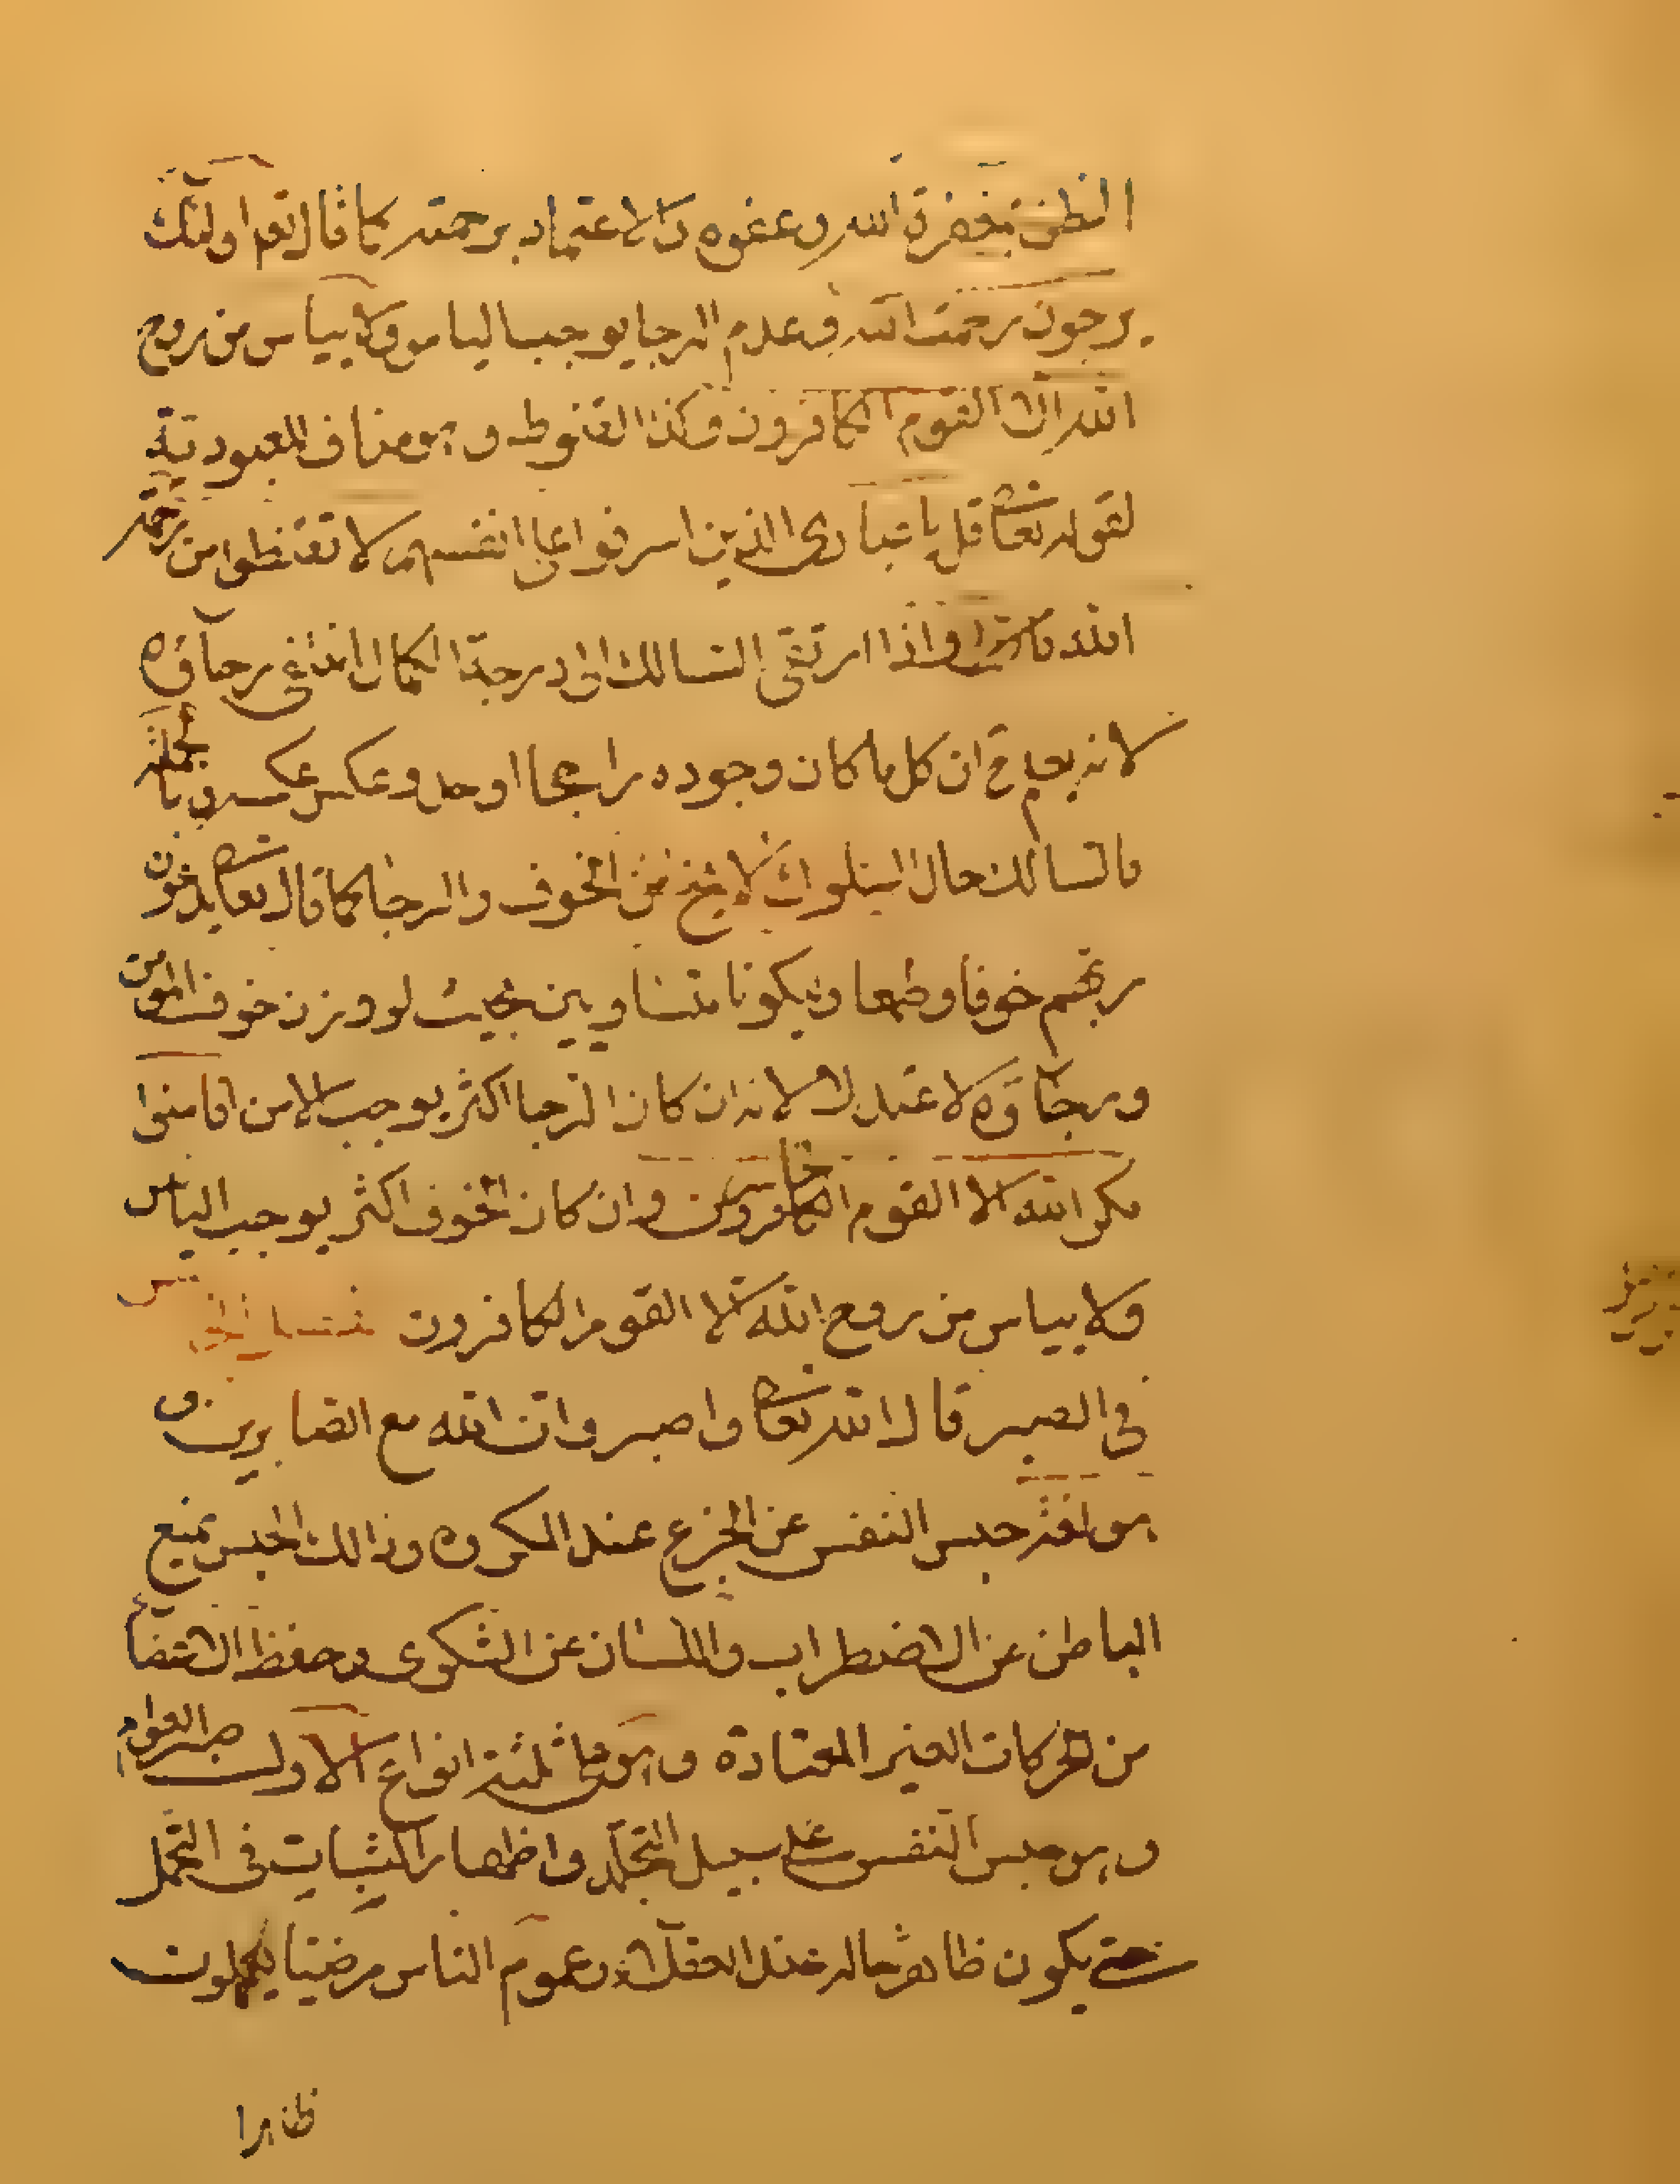 الظن بمغفرة الله وعفوه والاعتماد برحمته كما قال تعم اولئك
يرجون رحمت الله وعدم الرجا يوجب الياس ولا ييأس من روح
الله الا القوم الكافرون وكذا القنوط وهو مناف للعبودية
لقوله تعا قل يا عبادى الذين اسرفوا على انفسهم لا تقنطوا من رحمة
الله واذا ارتقى السالك الى درجة الكمال انتفى رجآؤه
لانه يعلم ح ان كل ما كان وجوده راجحا اوجد وعكس عكسه وبالجملة
فالسالك حال السلوك لا يخ من الخوف والرجا كما قال تعا يدعون
ربهم خوفا وطمعا ويكونا متساويين بحيث لو وزن خوف المؤمن
ورجآؤه لاعتدلا لانه ان كان الرجا اكثر يوجب الامن افامنوا
مكر الله الا القوم خاسرون وان كان الخوف اكثر يوجب الياس
ولا ييأس من روح الله الا القوم الكافرون
فى الصبر قال الله تعا واصبروا ان الله مع الصابرين و
هو لغة حبس النفس عن الجزع عند المكروه وذالك الحبس يمنع
الباطن عن الاضطراب واللسان عن الشكوى وحفظ الاعضاء
من حركات الغير المعتادة وهو على ثلثة انواع الاول صبر العوام
وهو حبس النفس على سبيل التجلد واظهار الثبات فى التحمل
حتى يكون ظاهر حاله عند العقلا وعموم الناس مرضيا يعلمون
ظاهرا